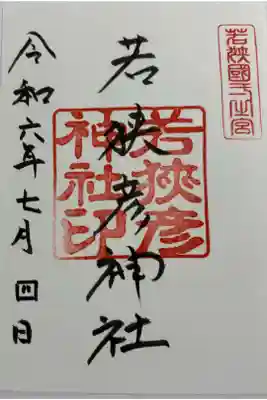 若狭國一之宮
若狹彦神社
若狹彦
神社印
令和六年七月四日